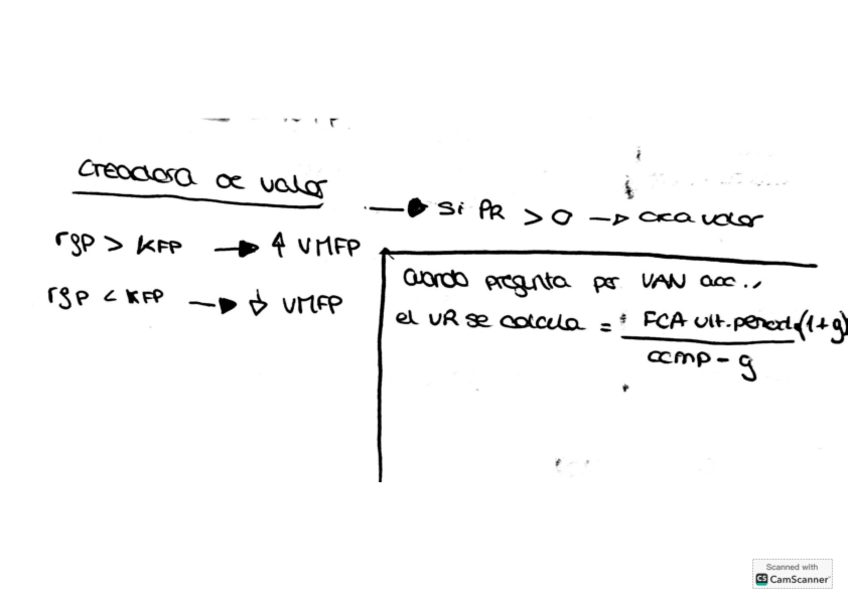 creadora de valor
→ Si PR > 0 → crea valor
rgp > KFP → ↑ VMFP
rgp < KFP → ↓ VMFP
cuando pregunta por VAN acc.,
el VR se calcula = FCA ult. period. (1+g)
ccmp - g
Scanned with
CS CamScanner